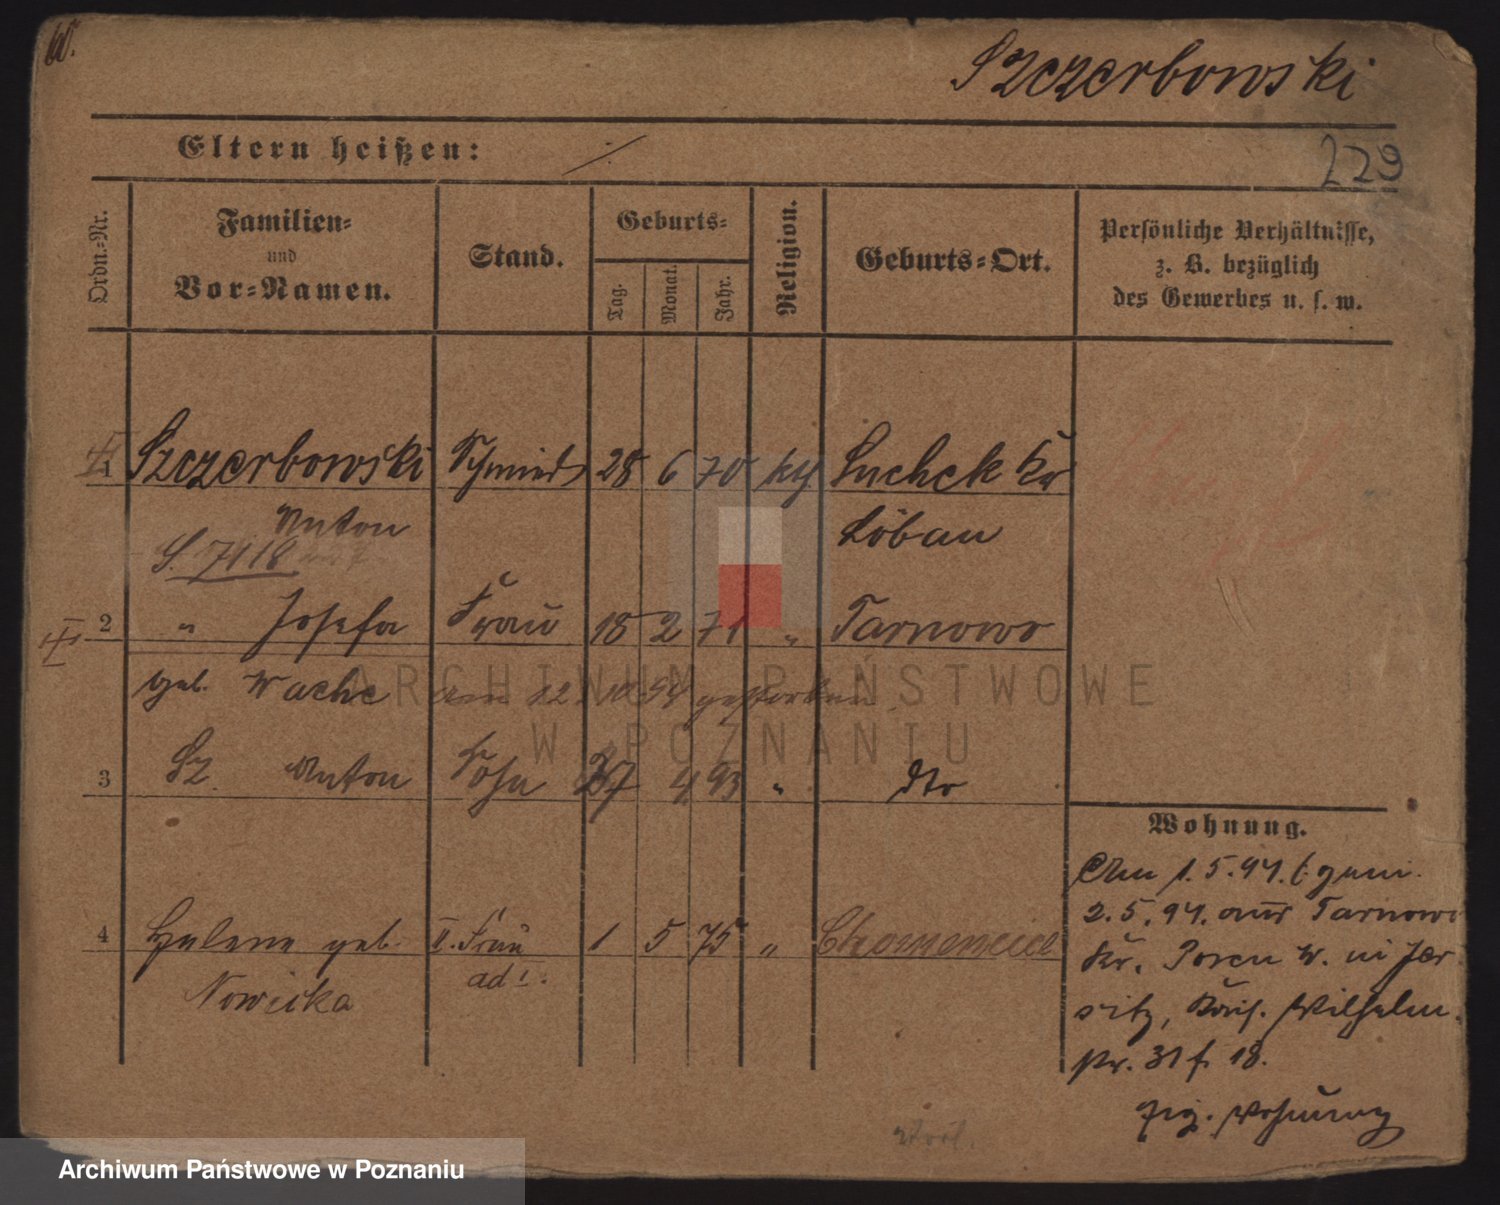 Szczerbowski
229
Eltern heißen: ./.
Ordn.-Nr.
Familien-
und
Vor-Namen.
Stand.
Geburts-
Tag.
Monat.
Jahr.
Religion.
Geburts-Ort.
Persönliche Verhältnisse,
z. B. bezüglich
des Gewerbes u. s. w.
1 Szczerbowski Schmied 28 6 70 kth Suchek Kr
Anton Löbau
S. 7118
2 " Josefa Frau 18 2 71 " Tarnowo
geb. Wache am 12 gestorben
3 Sz. Anton Sohn 27 4 93 " dto
4 Helene geb. II. Frau 1 5 75 "
Nowicka ad 1.
Wohnung.
Am 1.5.94. gem.
2.5.94. aus Tarnowo
Kr. Posen W. in Jer
sitz, Kais. Wilhelm
str. 31 f. 18.
Eig. Wohnung
ARCHIWUM PAŃSTWOWE
W POZNANIU
Archiwum Państwowe w Poznaniu